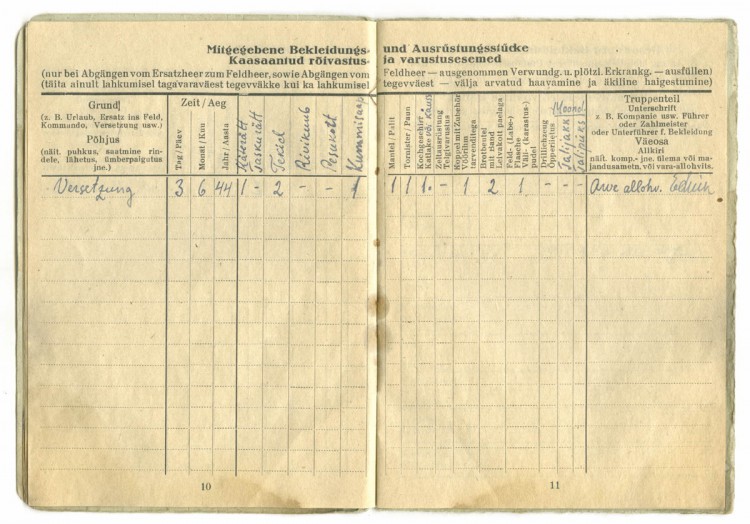 Mitgegebene Bekleidungs- und Ausrüstungsstücke
Kaasaantud rõivastus- ja varustusesemed
(nur bei Abgängen vom Ersatzheer zum Feldheer, sowie Abgängen vom Feldheer — ausgenommen Verwundg. u. plötzl. Erkrankg. — ausfüllen)
(täita ainult lahkumisel tagavaraväest tegevväkke kui ka lahkumisel tegevväest — välja arvatud haavamine ja äkiline haigestumine)
Grund
(z. B. Urlaub, Ersatz ins Feld,
Kommando, Versetzung usw.)
Põhjus
(näit. puhkus, saatmine rin-
dele, lähetus, ümberpaigutus
jne.)
Zeit / Aeg
Tag / Päev
Monat / Kuu
Jahr / Aasta
Käterätt
Taskurätt
Tekid
Rivikuub
Pesukott
Mantel / Palit
Tornister / Paun
Kochgeschir
Katlake
Zeltausrüstung
Telgivarustus
Koppel mit Zubehör
Vöörihm
tarvenditega
Brotbeutel
mit Band
Leivakott paelaga
Feld- (Labe-)
Flasche
Väli- (karastus-)
pudel
Drillichzeug
Õppeeriietus
Truppenteil
Unterschrift
z. B. Kompanie usw. Führer
oder Zahlmeister
oder Unterführer f. Bekleidung
Väeosa
Allkiri
näit. komp.- jne. ülema või ma-
jandusametn. või vara-allohvits.
Versetzung 3 6 44 1 - 2 - - 1 1 1 1. - 1 2 1 - Arve allohv.
10
11